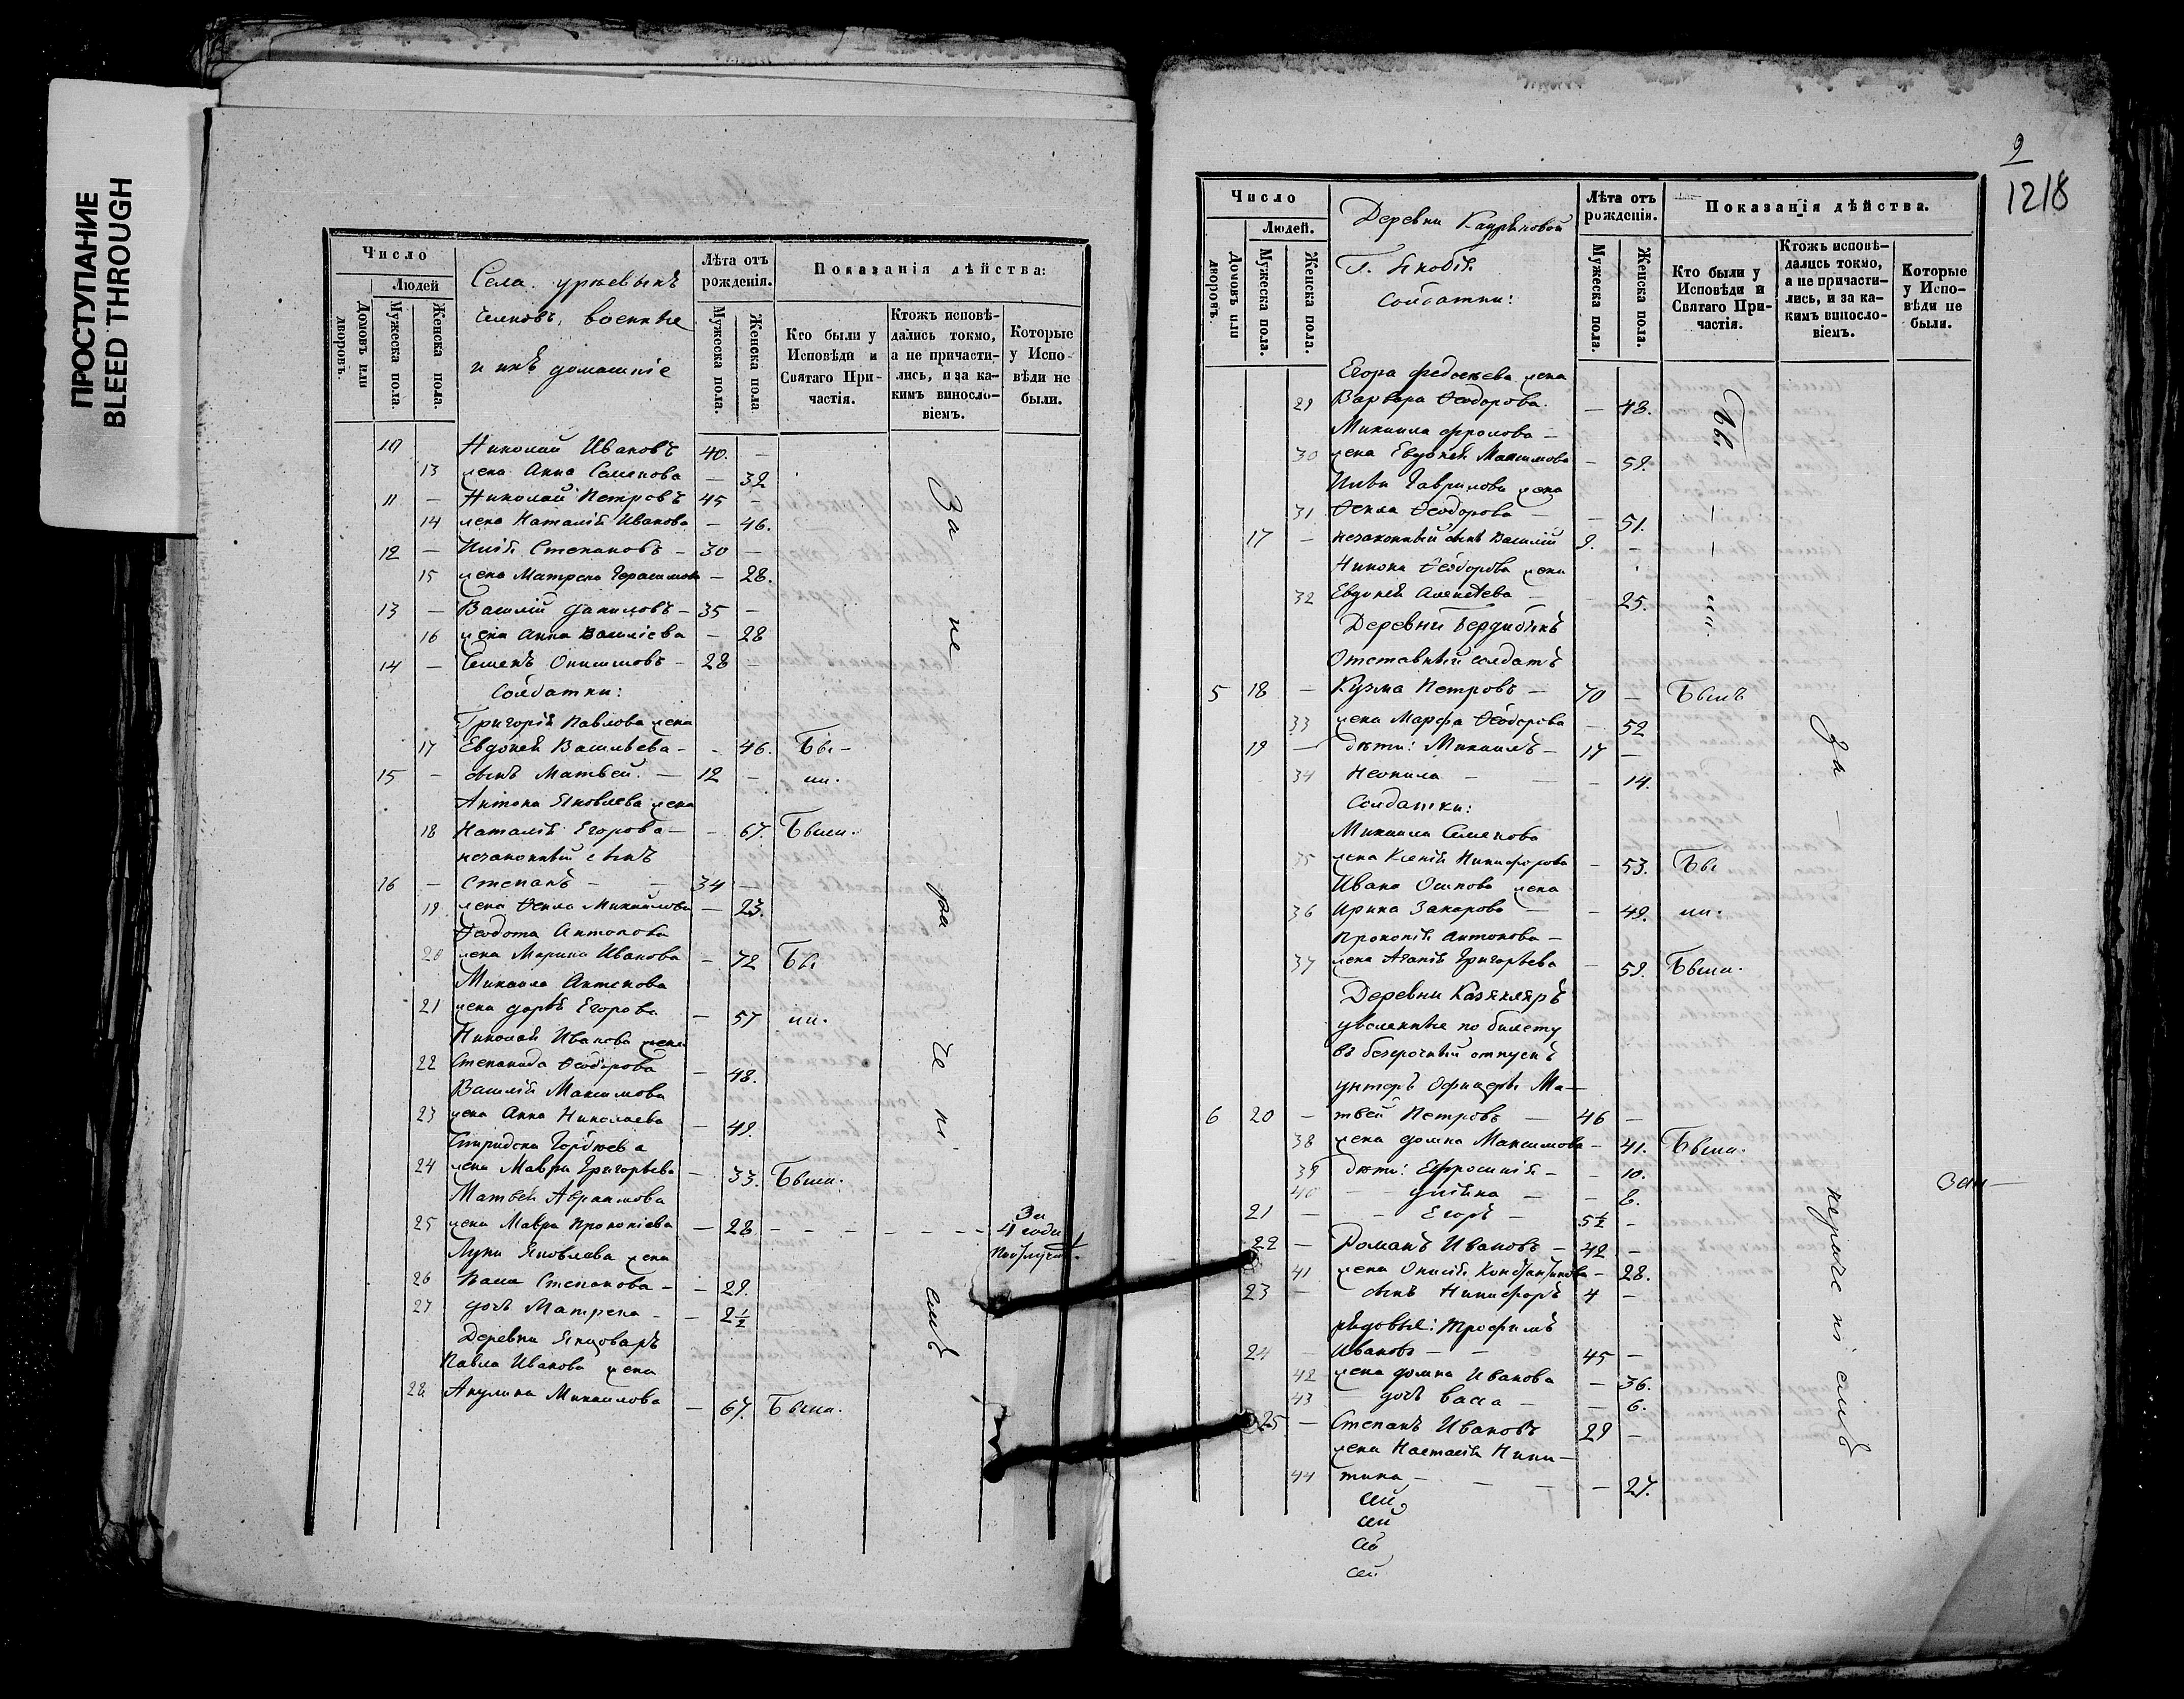 ПРОСТУПАНИЕ
BLEED THROUGH
Число
Людей
Домовъ или дворовъ.
Мужеска пола.
Женска пола.
Села
военные
и ихъ домашніе
Лѣта отъ рожденія.
Мужеска пола.
Женска пола
Показанія дѣйства:
Кто были у Исповѣди и Святаго Причастія.
Ктожъ исповѣдались токмо, а не причастились, и за какимъ винословіемъ.
Которые у Исповѣди не были.
10 Николай Ивановъ 40. —
13 жена Анна Семенова — 32
11 — Николай Петровъ 45 —
14 жена Наталія Иванова — 46.
12 — Илія Степановъ — 30 —
15 жена Матрена Герасимова — 28.
13 — Василій Даниловъ — 35 —
16 жена Анна Василіева — 28
14 — Семенъ Онисимовъ — 28 —
Солдатки:
Григорія Павлова жена
17 Евдокія Васильева — - 46. Бы-
15 — сынъ Матвей. — 12 — ли.
Антона Яковлева жена
18 Наталія Егорова — - 67. Были.
незаконный сынъ
16 — Степанъ — — 34 —
19 жена Ѳекла Михайлова — 23.
Ѳеодота Антонова
20 жена Марина Иванова — 72 Бы
Михаила Антонова
21 жена Дарья Егорова — 57 ли.
Николая Иванова жена
22 Степанида Ѳеодорова — 48.
Василія Максимова
23 жена Анна Николаева — 49.
Спиридона Гордѣева
24 жена Мавра Григорьева — 33. Были.
Матвея Абрамова
25 жена Мавра Прокопіева — 28 — — — — — За 4 года
Луки Яковлева жена
26 Степанова — — 29.
27 дочь Матрена — — 2½
Деревни Янцоваръ
Павла Иванова жена
28 Акулина Михаилова — 67. Были.
За не ра че ні емъ
9
1218
Число
Людей.
Домовъ или дворовъ.
Мужеска пола.
Женска пола.
Деревни
Солдатки:
Лѣта отъ рожденія.
Мужеска пола.
Женска пола.
Показанія дѣйства.
Кто были у Исповѣди и Святаго Причастія.
Ктожъ исповѣдались токмо, а не причастились, и за какимъ винословіемъ.
Которые у Исповѣди не были.
Егора жена
29 Варвара Ѳеодорова. — 48. Бы
Михаила Фролова —
30 жена Евдокія Максимова — 59.
Ильи Гаврилова жена
31 Ѳекла Ѳеодорова — — 51.
17 — незаконный сынъ Василій 9. —
Никона Ѳеодорова жена
32 Евдокія Алексѣева — 25. ли.
Деревни
Отставный солдатъ
5 18 — Кузма Петровъ — 70 — Былъ
33 жена Марфа Ѳеодорова — 52
19 — дѣти: Михаилъ — 17 —
34 Неонила — — — 14.
Солдатки:
Михаила Семенова
35 жена Ксенія Никифорова — 53. Бы
Ивана Осипова жена
36 Ирина Захарова — — 49. ли.
Прокопія Антонова —
37 жена Агафія Григорьева — 59. Были.
Деревни Казякляръ
уволенные по билету
въ безсрочный отпускъ
унтеръ Офицеръ Ма-
6 20 — твей Петровъ — 46 —
38 жена Домна Максимова — 41. Были.
39 дѣти: Ефросинія — — 10.
40 — — — — 8.
21 — — Егоръ — 5½ —
22 — Романъ Ивановъ — 42 —
41 жена Константинова — 28.
23 — сынъ Никифоръ 4 —
рядовые: Трофимъ
24 — Ивановъ — — 45 —
42 жена Домна Иванова — 36.
43 — дочь Васса — — 6.
25 — Степанъ Ивановъ 29 —
жена Настасія Ники-
44 тина — — — — 27.
За — нераченіемъ